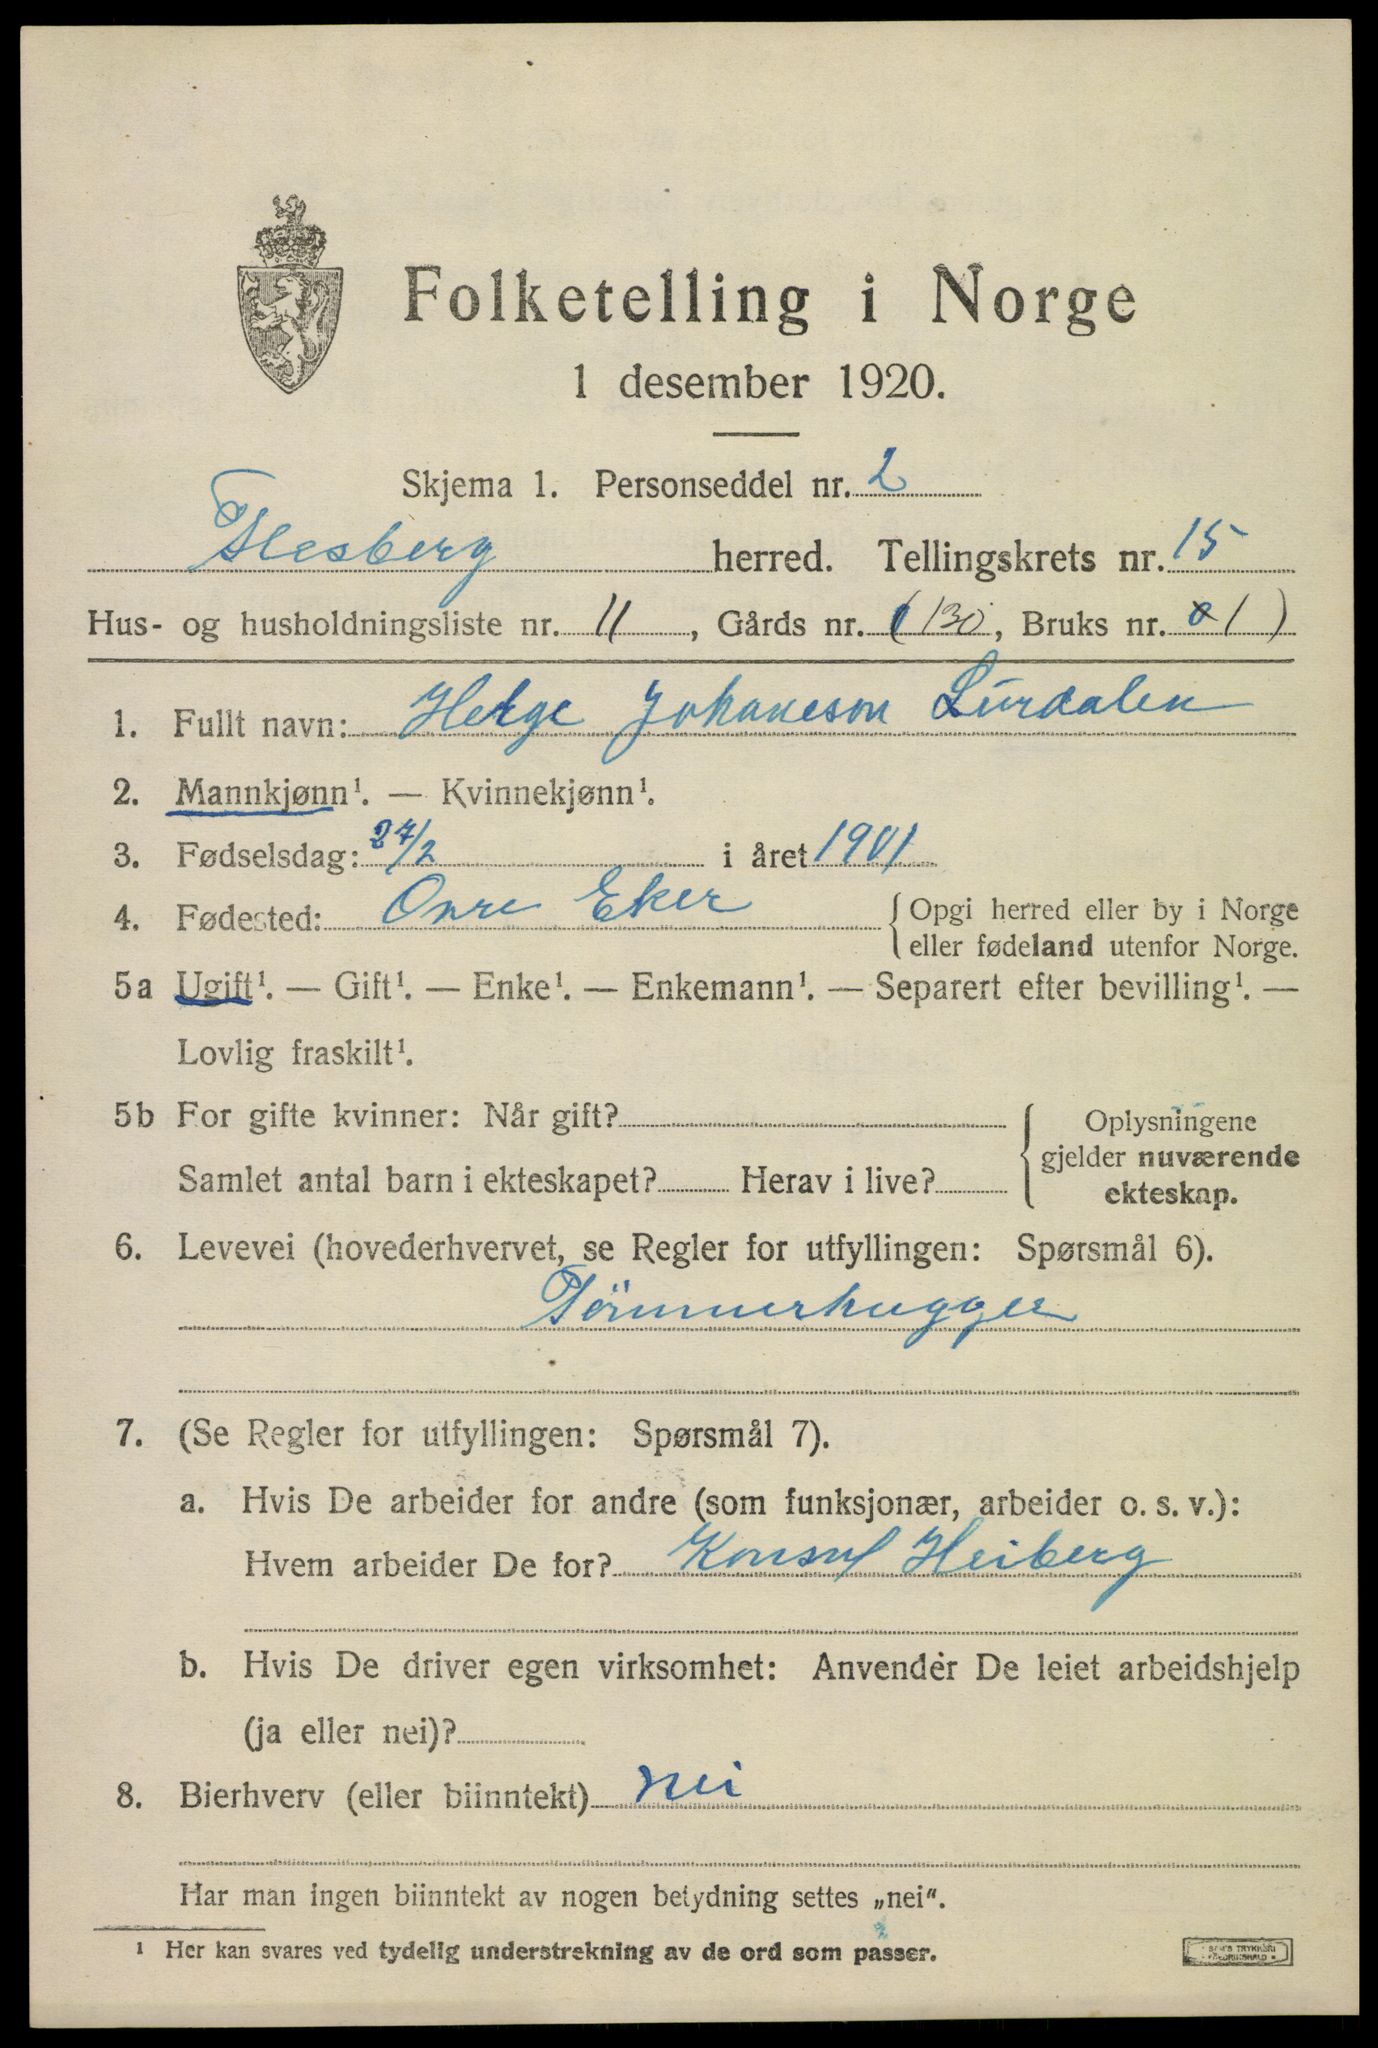 Folketelling i Norge
1 desember 1920.
Skjema 1. Personseddel nr. 2
Flesberg herred. Tellingskrets nr. 15
Hus- og husholdningsliste nr. 11, Gårds nr. (130, Bruks nr. 1)
1. Fullt navn: Helge Johaneson Lurdalen
2. Mannkjønn¹. — Kvinnekjønn¹.
3. Fødselsdag: 27/2 i året 1901
4. Fødested: Øvre Eker {Opgi herred eller by i Norge
eller fødeland utenfor Norge.
5a Ugift¹. — Gift¹. — Enke¹. — Enkemann¹. — Separert efter bevilling¹. —
Lovlig fraskilt¹.
5b For gifte kvinner: Når gift? { Oplysningene
gjelder nuværende
Samlet antal barn i ekteskapet? Herav i live? ekteskap.
6. Levevei (hovederhvervet, se Regler for utfyllingen: Spørsmål 6).
Tömmerhugger
7. (Se Regler for utfyllingen: Spørsmål 7).
a. Hvis De arbeider for andre (som funksjonær, arbeider o. s. v.):
Hvem arbeider De for? Konsul Heiberg
b. Hvis De driver egen virksomhet: Anvender De leiet arbeidshjelp
(ja eller nei)?
8. Bierhverv (eller biinntekt) nei
Har man ingen biinntekt av nogen betydning settes „nei".
¹ Her kan svares ved tydelig understrekning av de ord som passer.